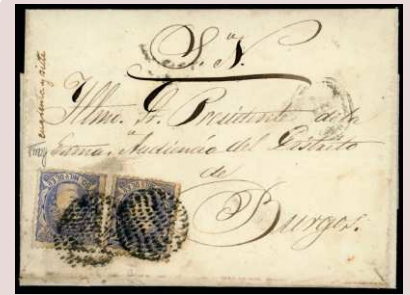 S. N.
Illmo. Sr. Presidente de la
Audiencia del Distrito
de
Burgos.